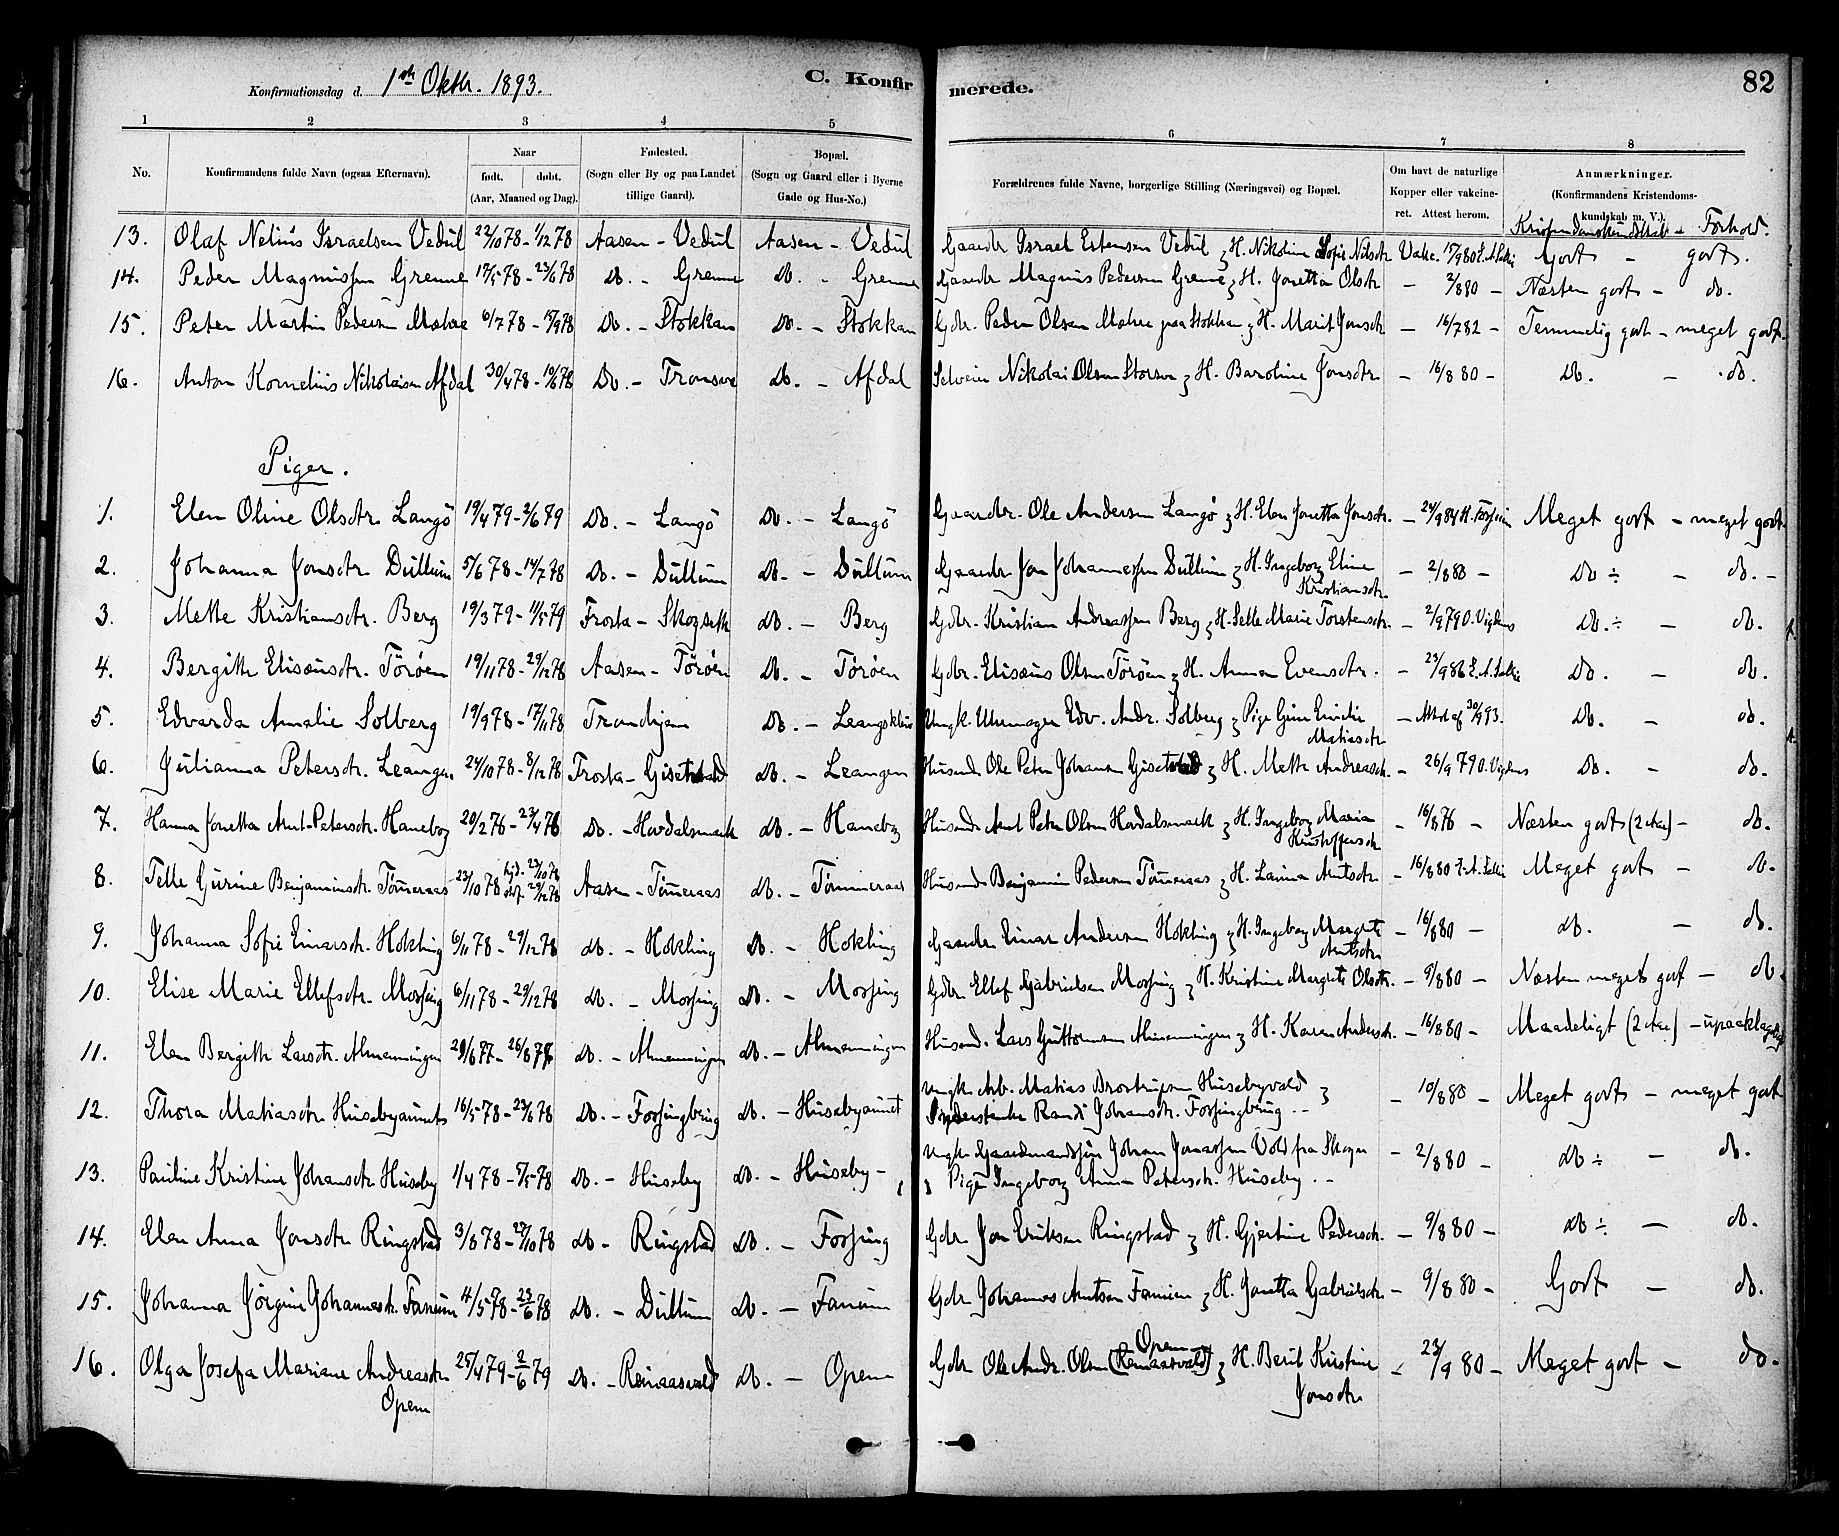 Konfirmationsdag d. 1ste Oktbr. 1893.
C. Konfirmerede.
82
1 2 3 4 5 6 7 8
No. Konfirmandens fulde Navn (ogsaa Efternavn). Naar født. døbt. (Aar, Maaned og Dag). Fødested. (Sogn eller By og paa Landet tillige Gaard). Bopæl. (Sogn og Gaard eller i Byerne Gade og Hus-No.) Forældrenes fulde Navne, borgerlige Stilling (Næringsvei) og Bopæl. Om havt de naturlige Kopper eller vakcineret. Attest herom. Anmærkninger. (Konfirmandens Kristendomskundskab m. V.).
Kristendomskundskab - Forhold.
13. Olaf Nelius Israelsen Vedul 22/10 78 - 1/12 78 Aasen - Vedul Aasen - Vedul Gaardbr Israel Estensen Vedul & H. Nikoline Sofie Nilsdtr Vakc. 17/9 80 Godt - godt.
14. Peder Magnussen Grenne 17/5 78 - 23/6 78 Do. - Grenne Do. - Grenne Gaardbr Magnus Pedersen Grenne & H. Jonetta Olsdtr - 2/8 80 - Næsten godt - do.
15. Peter Martin Pedersen Mæhre 6/7 78 - 15/9 78 Do. - Stokkan Do. - Stokkan Gdbr. Peder Olsen Mæhre paa Stokkan & H. Marit Jonsdtr - 16/7 82 - Temmelig godt - meget godt.
16. Anton Kornelius Nikolaisen Afdal 30/4 78 - 10/6 78 Do. - Tronsve Do. - Afdal Selveier Nikolai Olsen Storsve & H. Baroline Jonsdtr - 16/8 80 - Do. - do.
Piger.
1. Elen Oline Olsdtr. Langö 19/4 79 - 2/6 79 Do. - Langö Do. - Langö Gaardbr. Ole Andersen Langö & H. Elen Jonetta Jonsdtr. - 24/9 84 Meget godt - meget godt
2. Johanna Jonsdtr Dullum 5/6 78 - 14/7 78 Do. - Dullum Do. - Dullum Gaardbr Jon Johannessen Dullum & H. Ingeborg Eline Kristiansdtr. - 2/8 80 - Do ÷ - do. -
3. Mette Kristiansdtr. Berg 19/3 79 - 11/5 79 Frosta - Skogseth Do. - Berg Gdbr. Kristian Andreassen Berg & H. Selle Marie Torstensdtr. - 2/9 79 O. Vigdens Do. ÷ - do.
4. Bergitte Elisæusdtr. Töröen 19/11 78 - 29/12 78 Aasen - Töröen Do. - Töröen Gdbr. Elisæus Olsen Töröen & H. Anna Evensdtr. - 23/9 86 Do. - do.
5. Edvarda Amalie Solberg 19/9 78 - 17/11 78 Trondhjem Do. - Leangsklev Ungk. Uhrmager Edv. Andr. Solberg & Pige Gine Emelie Matiasdtr - Attest af 30/9 93. Do. - do.
6. Julianna Petersdtr. Leangen 24/10 78 - 8/12 78 Frosta - Gisetstad Do. - Leangen Husmd. Ole Peter Johansen Gisetstad & H. Mette Andreasdtr. - 26/9 79 O. Vigdens Do. - do.
7. Hanna Jonetta Arnt-Petersdtr. Haneborg 20/2 76 - 23/4 76 Do. - Hordalsmark Do. - Haneborg Husmd. Arnt Peter Olsen Hordalsmark & H. Ingeborg Maria Kristoffersdtr - 16/8 76 - Næsten godt (2 Aar) - do.
8. Telle Gurine Benjaminsdtr. Tömmeraas 23/10 78 hjd. 23/10 78 stdf. 29/12 78 Aasen - Tömmeraas Do. - Tömmeraas Husmd. Benjamin Pedersen Tömmeraas & H. Laurina Arntsdtr - 16/8 80 Meget godt - do.
9. Johanna Sofie Einarsdtr. Hokling 6/11 78 - 29/12 78 do. - Hokling Do. - Hokling Gaardbr Einar Andersen Hokling & H. Ingeborg Margrete Arntsdtr - 16/8 80 - do. - do.
10. Elise Marie Ellefsdtr. Mossing 6/11 78 - 29/12 78 do. - Mossing Do. - Mossing Gdbr Ellef Gabrielsen Mossing & H. Kristine Margrete Olsdtr. - 9/8 80 - Næsten meget godt - do.
11. Elen Bergitte Larsdtr. Almenningen 29/6 77 - 26/8 77 do. - Almenningen do. - Almenningen Husmd. Lars Guttormsen Almenningen & H. Karen Andersdtr. - 16/8 80 - Maadeligt (2 Aar) - upaaklageligt
12. Thora Matiasdtr Husebyaunet 16/5 78 - 23/6 78 Do. - Forsingbring Do. - Husebyaunet Ungk. Arb. Matias Brostrupsen Husebyvald & Inderstenke Randi Johansdtr. Forsingbring. - - 10/8 80 - Meget godt - meget godt
13. Pauline Kristine Johansdtr. Huseby 1/4 78 - 5/5 78 do. - Huseby do. - Huseby - Ungk Gaardmandssøn Johan Jonassen Vold fra Skogn & Pige Ingeborg Anna Petersdtr. Huseby. - - 2/8 80 - do ÷ - do.
14. Elen Anna Jonsdtr Ringstad 3/8 78 - 27/10 78 do - Ringstad do. - Forsing Gdbr Jon Eriksen Ringstad & H. Gjertine Pedersdtr. - 9/8 80 - do ÷ - do.
15. Johanna Jörgine Johannesdtr. Fanum 11/5 78 - 23/6 78 do. - Dullum do. - Fanum Gdbr Johannes Arntsen Fanum & H. Jonetta Gabrielsdtr - 9/8 80 - Godt - do.
16. Olga Josefa Mariane Andreasdtr Opem 25/4 79 - 2/6 79 do. - Reinaasvald do. - Opem Gdbr Ole Andr. Olsen (Reinaasvald) Opem & H. Beret Kirstine Jonsdtr - 23/9 80 - Meget godt - do.